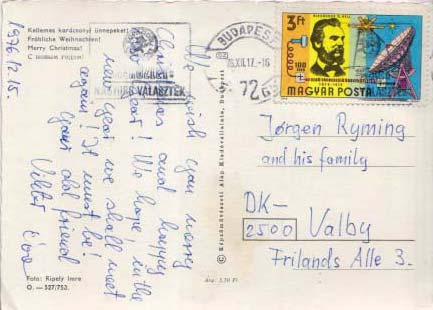 Kellemes karácsonyi ünnepeket!
Fröhliche Weihnachten!
Merry Christmas!
С новым годом!
1976.12.15.
We wish you merry
Christmas and happy
new year! We hope, in the
new year we shall meet
again! It must be!
Your old friend
Viktor
Foto: Ripely Imre
O. — 527/753.
© Képzőművészeti Alap Kiadóvállalata, Budapest
Ára: 3,20 Ft
NAGYOBB VÁLASZTÉK
BUDAPEST
76.XII.17.-16
72
3 Ft
ALEXANDER G. BELL
100 ÉVES
MAGYAR POSTA
Jørgen Ryming
and his family
DK-
2500 Valby
Frilands Alle 3.